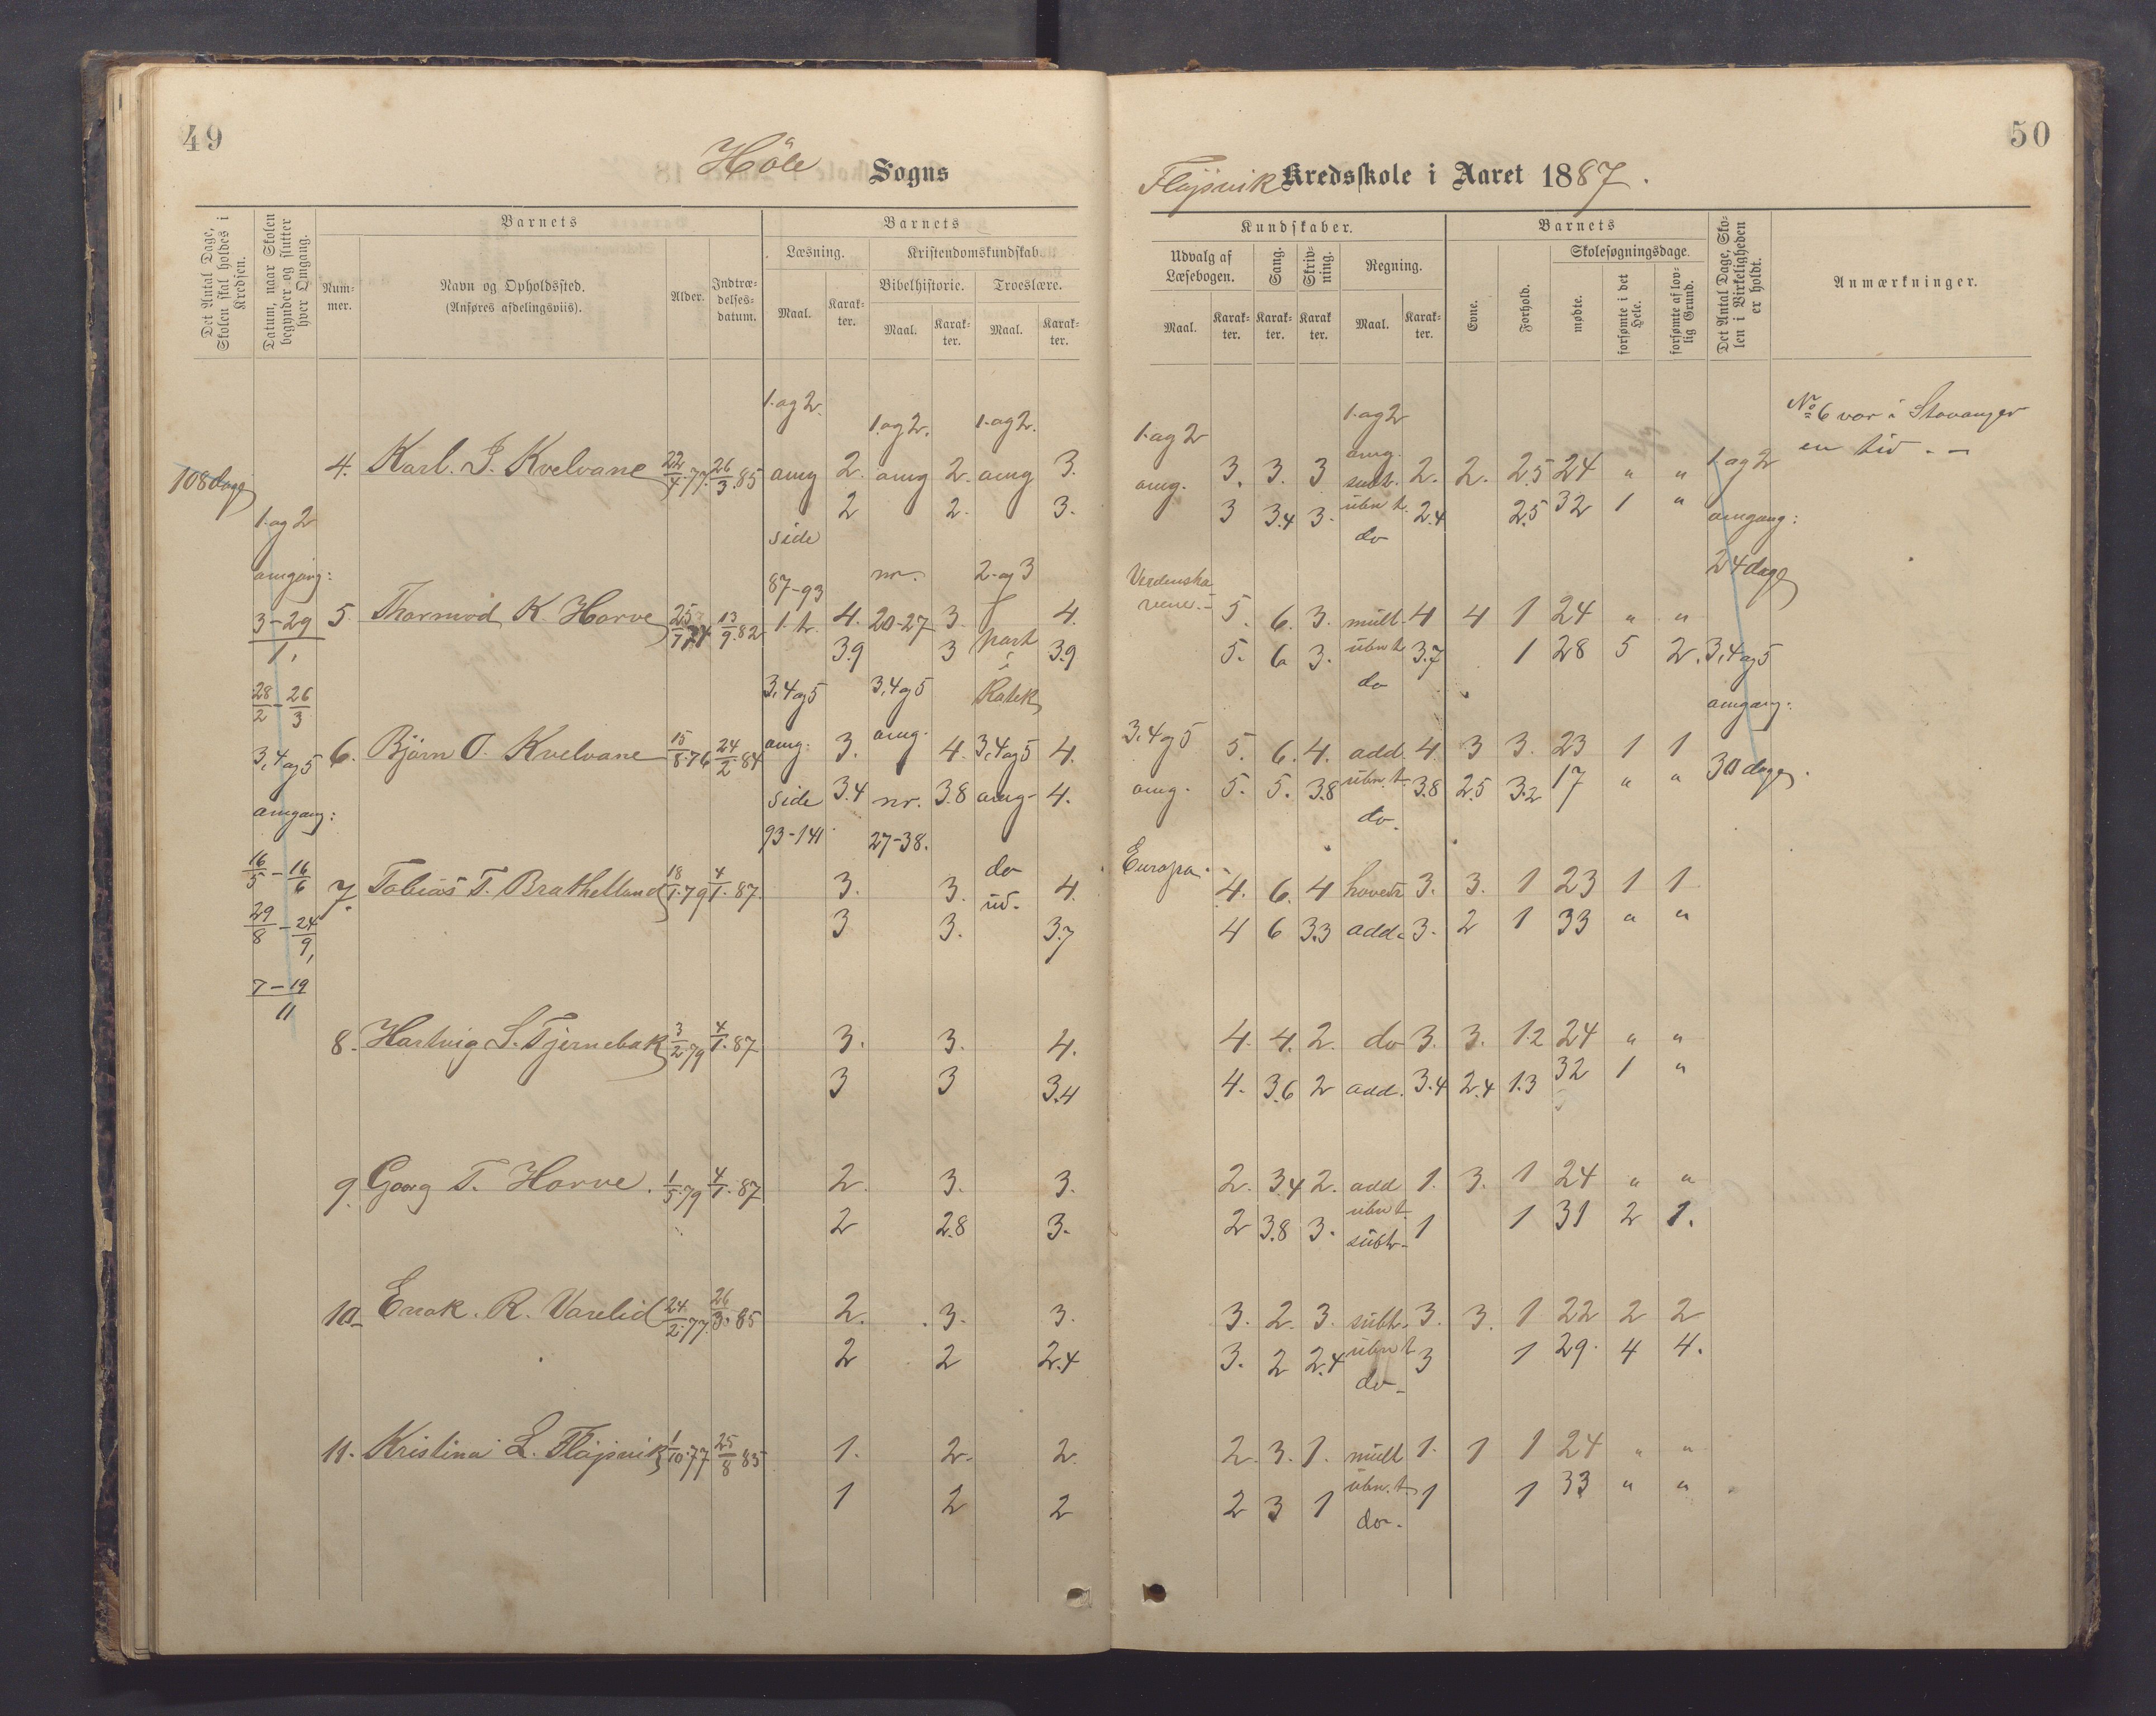 49
Höle Sogns
Det Antal Dage, Skolen skal holdes i Kredsen.
Datum, naar Skolen begynder og slutter hver Omgang.
Barnets
Nummer.
Navn og Opholdssted.
(Anføres afdelingsviis).
Alder.
Indtrædelsesdatum.
Barnets
Læsning.
Maal.
Karakter.
Kristendomskundskab.
Bibelhistorie.
Maal.
Karakter.
Troeslære.
Maal.
Karakter.
108 dage
1. og 2
omgang:
3-29
1,
28/2 - 26/3
3, 4 og 5
omgang:
16/5 - 16/6
29/8 - 24/9,
7-19
11
1. og 2. 1. og 2. 1. og 2.
4. Karl. J. Kvelvane 22/4.77. 26/3.85 omg 2. omg 2. omg 3.
2 2. 3.
side
87-93 nr. 2 og 3
5. Thormod K. Horve 25/7.74 13/9.82 1. h. 4. 20-27 3. 4.
3.9 3 part i 3.9
3, 4 og 5 3, 4 og 5 Katek
6. Björn O. Kvelvane 15/8.76 24/2.84 omg: 3. omg. 4. 3, 4 og 5 4.
side 3.4 nr. 3.8 omg- 4.
93-141 27-38.
do
7. Tobias T. Brathetland 18/1.79 4/1.87. 3. 3. ud. 4.
3 3. 3.7
8. Hartvig S. Tjernebak 3/2.79 4/1.87 3. 3. 4.
3 3 3.4
9. Georg T. Horve. 1/5.79 4/1.87 2. 3. 3.
2 2.8 3.
10. Enok. R. Varelid 24/2.77. 26/3.85 2. 3. 3.
2 2 2.4
11. Kristina L. Fløjsvik 1/10.77 25/8 85 1. 2. 2.
1 2 2
50
Fløjsvik Kredsskole i Aaret 1887.
Kundskaber.
Udvalg af Læsebogen.
Maal.
Karakter.
Sang.
Karakter.
Skrivning.
Karakter.
Regning.
Maal.
Karakter.
Barnets
Evne.
Forhold.
Skolesøgningsdage.
mødte.
forsømte i det Hele.
forsømte af lovlig Grund.
Det Antal Dage, Skolen i Virkeligheden er holdt.
Anmærkninger.
No 6 var i Stavanger
en tid. -
1. og 2 1. og 2
omg.
omg. 3. 3. 3 subt. 2. 2. 2.5 24 " " 1 og 2
3 3.4 3. ubn t. 2.4 2.5 32 1 " omgang:
do
24 dage
Verdensha
vene.- 5. 6. 3. mult. 4 4 1 24 " "
5. 6 3. ubn t. 3.7 1 28 5 2. 3, 4 og 5
do
omgang:
3, 4 og 5 5. 6. 4. add. 4. 3 3. 23 1 1
omg. 5. 5. 3.8 ubn. t. 3.8 2.5 3.2 17 " " 30 dage.
do.
Europa. 4. 6. 4 hovedr 3. 3. 1 23 1 1
4 6 3.3 add. 3. 2 1 33 " "
4. 4. 2. do 3. 3. 1.2 24 " "
4. 3.6 2 add. 3.4 2.4 1.3 32 1 "
2. 3.4 2. add 1. 3. 1 24 " "
2 3.8 3. ubn t. 1 1 31 2 1.
subtr-
3. 2. 3. subtr. 3. 3. 1 22 2 2
3. 2 2.4 ubn t 3 1 29. 4 4.
do-
2. 3. 1. mult 1. 1 1 24 " "
2 3 1 ubn. t. 1 1 33 " "
do.